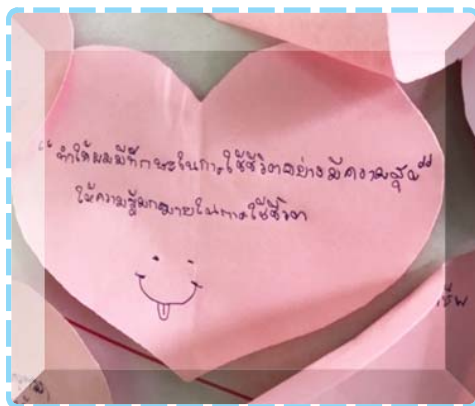 "ทำให้ผมมีทักษะในการใช้ชีวิตอย่างมีความสุข"
ให้ความรู้มากมายในการใช้ชีวิต